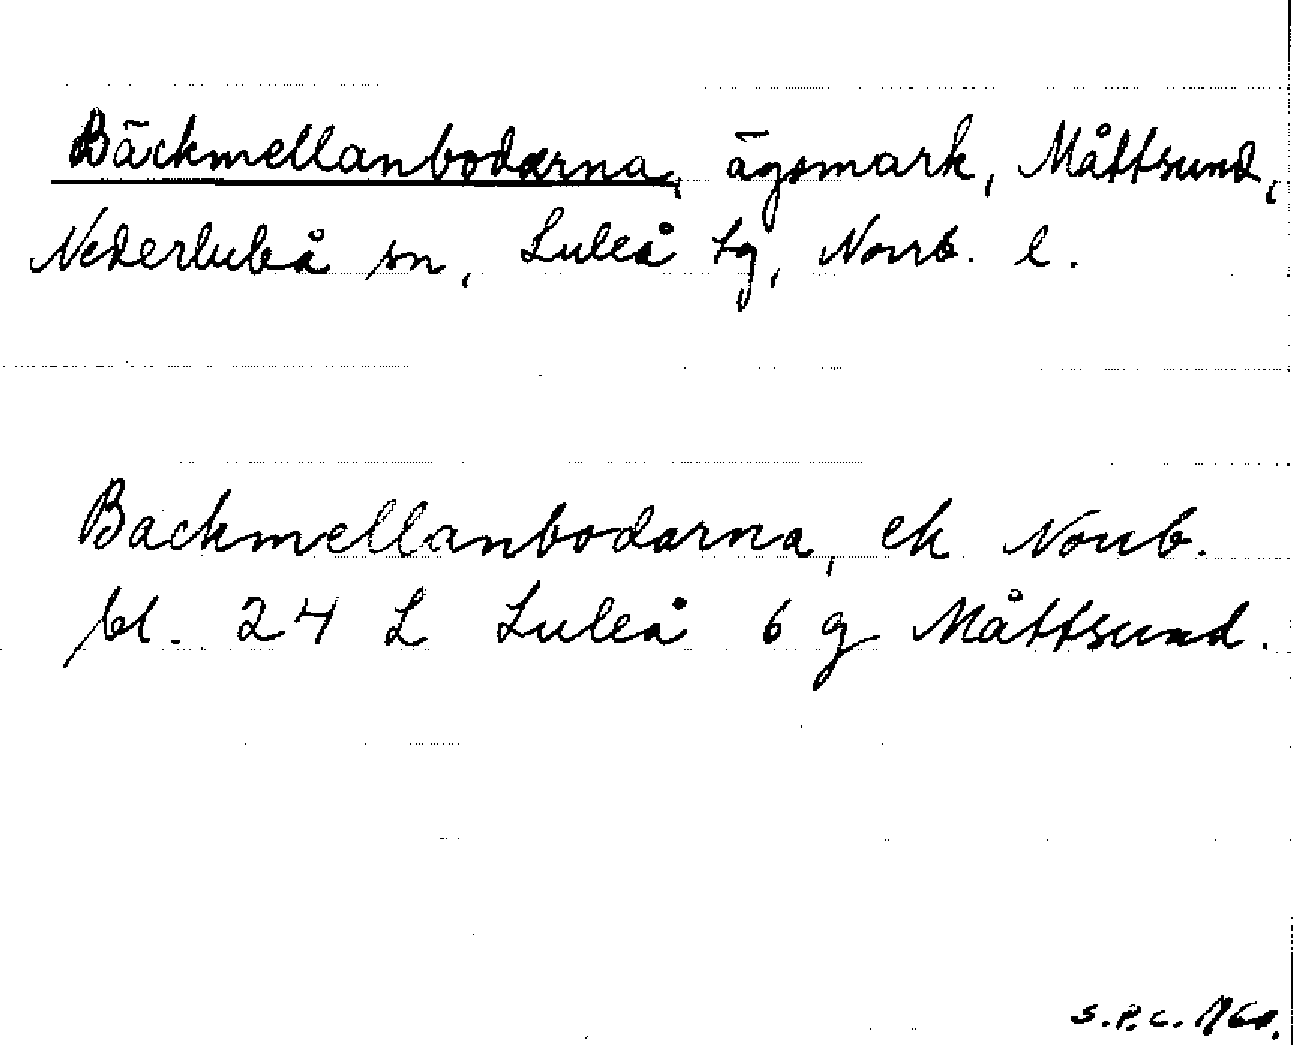 Bäckmellanbodarna, ägomark, Måttsund,
Nederluleå sn, Luleå tg, Norrb. l.
Backmellanbodarna, ek Norrb.
bl. 24 L Luleå 6 g Måttsund.
S.P.C. 1960.